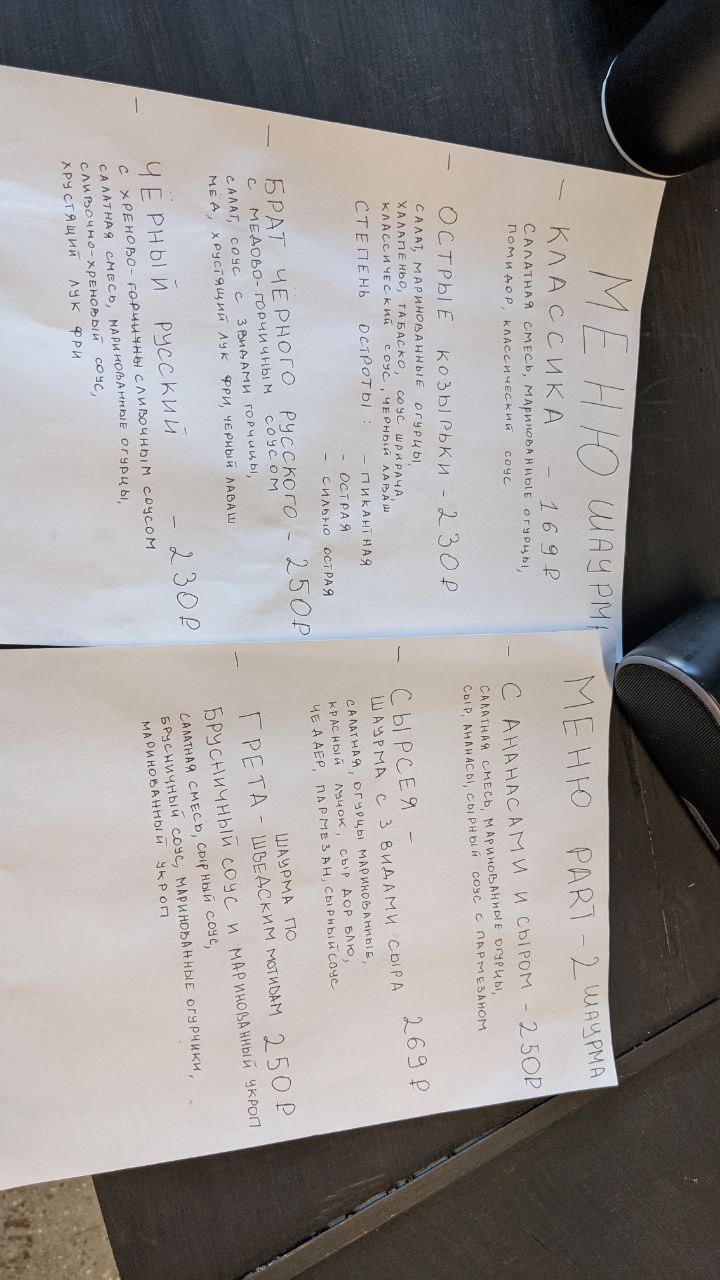 МЕНЮ ШАУРМ
— КЛАССИКА - 169₽
САЛАТНАЯ СМЕСЬ, МАРИНОВАННЫЕ ОГУРЦЫ,
ПОМИДОР, КЛАССИЧЕСКИЙ СОУС
— ОСТРЫЕ КОЗЫРЬКИ - 230₽
САЛАТ, МАРИНОВАННЫЕ ОГУРЦЫ,
ХАЛАПЕНЬО, ТАБАСКО, СОУС ШРИРАЧА,
КЛАССИЧЕСКИЙ СОУС, ЧЕРНЫЙ ЛАВАШ
СТЕПЕНЬ ОСТРОТЫ: - ПИКАНТНАЯ
- ОСТРАЯ
- СИЛЬНО ОСТРАЯ
— БРАТ ЧЁРНОГО РУССКОГО - 250₽
С МЕДОВО-ГОРЧИЧНЫМ СОУСОМ
САЛАТ, СОУС С 3 ВИДАМИ ГОРЧИЦЫ,
МЁД, ХРУСТЯЩИЙ ЛУК ФРИ, ЧЕРНЫЙ ЛАВАШ
— ЧЁРНЫЙ РУССКИЙ - 230₽
С ХРЕНОВО-ГОРЧИЧНЫ СЛИВОЧНЫМ СОУСОМ
САЛАТНАЯ СМЕСЬ, МАРИНОВАННЫЕ ОГУРЦЫ,
СЛИВОЧНО-ХРЕНОВЫЙ СОУС,
ХРУСТЯЩИЙ ЛУК ФРИ
МЕНЮ PART-2 ШАУРМА
— С АНАНАСАМИ И СЫРОМ - 250₽
САЛАТНАЯ СМЕСЬ, МАРИНОВАННЫЕ ОГУРЦЫ,
СЫР, АНАНАСЫ, СЫРНЫЙ СОУС С ПАРМЕЗАНОМ
— СЫРСЕЯ - 269₽
ШАУРМА С 3 ВИДАМИ СЫРА
САЛАТНАЯ, ОГУРЦЫ МАРИНОВАННЫЕ,
КРАСНЫЙ ЛУЧОК, СЫР ДОР БЛЮ,
ЧЕДДЕР, ПАРМЕЗАН, СЫРНЫЙ СОУС
ШАУРМА ПО
— ГРЕТА - ШВЕДСКИМ МОТИВАМ 250₽
БРУСНИЧНЫЙ СОУС И МАРИНОВАННЫЙ УКРОП
САЛАТНАЯ СМЕСЬ, СЫРНЫЙ СОУС,
БРУСНИЧНЫЙ СОУС, МАРИНОВАННЫЕ ОГУРЧИКИ,
МАРИНОВАННЫЙ УКРОП